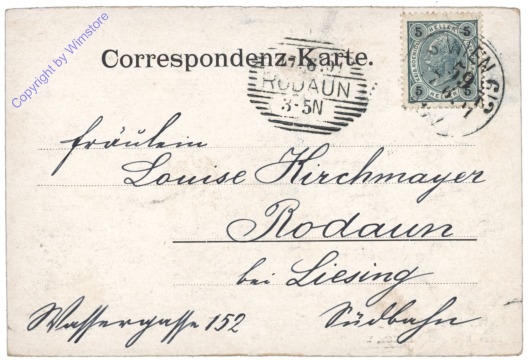 Copyright by Wimstore
Correspondenz-Karte.
RODAUN
3-5N
5 5
HELLER HELLER
5 5
WIEN 6/2
59
Fräulein
Louise Kirchmayer
Rodaun
bei Liesing
Wassergasse 152 Südbahn